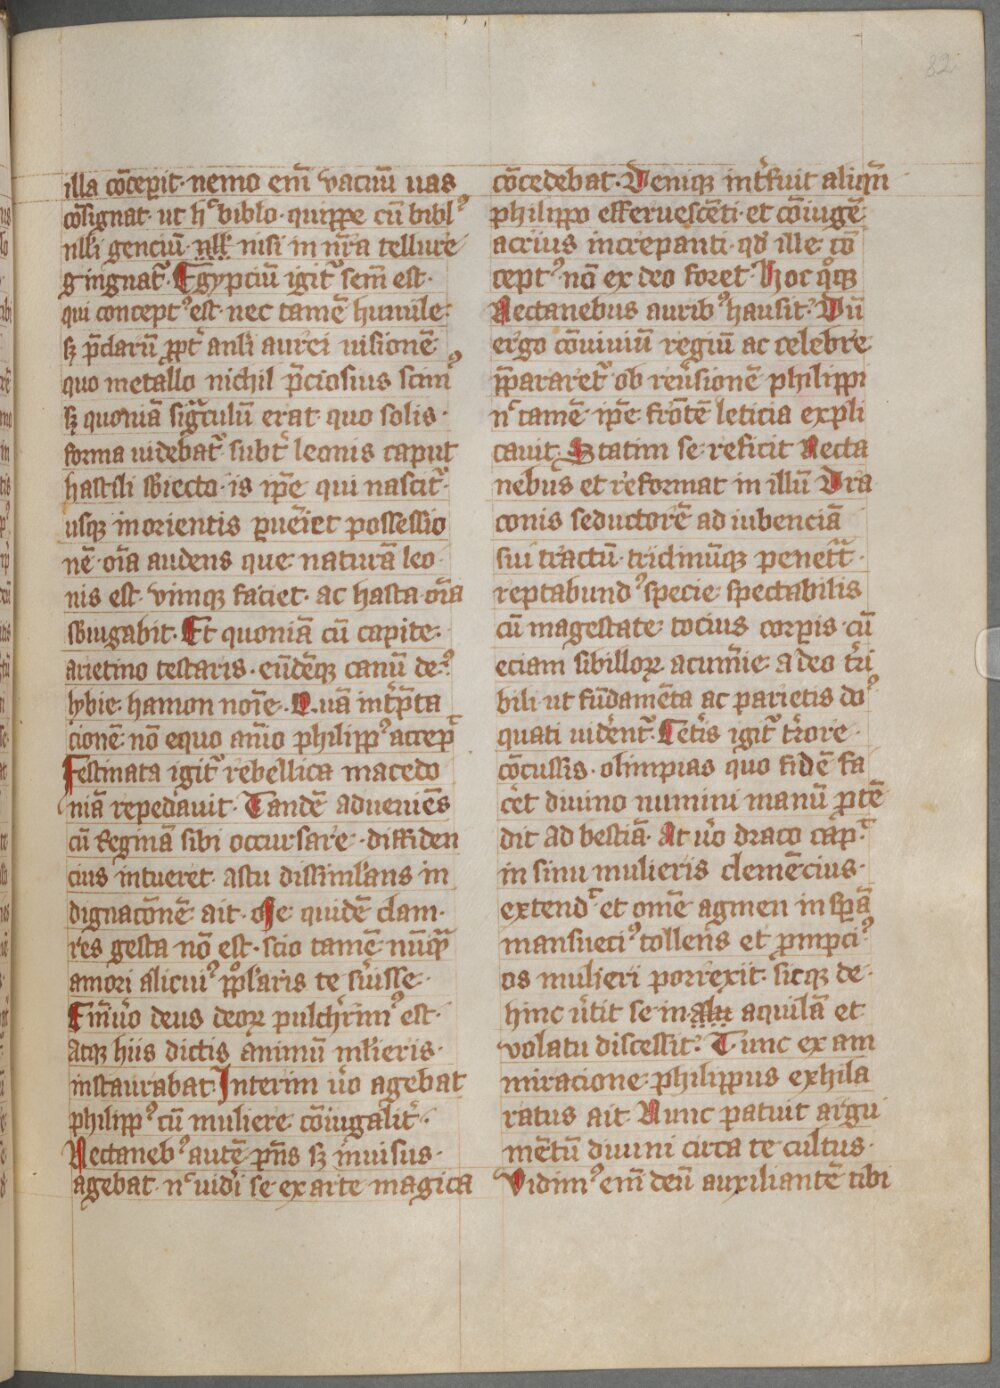 82
illa cōcepit· nemo em̄ vacuū uas
cōsignat· ut hͨ biblo· quippe cū bibl᾿
nlli genciū nisi in nr̄a tellure
gingnat᷑· Egypciū igit᷑ sem̄ est·
qui concept᾿ est· nec tamē humile·
sꝫ p̄clarū ꝓpt̄ anli aurei uisionē
quo metallo nichil p̄ciosius scim᾿
sꝫ quoniā erat· quo solis·
forma uidebat᷑· subt̄ leonis caput
hastili sbiecto· is ip̄e qui nascit᷑·
usqꝫ in orientis possessio
nē· oīa audens que naturā leo
nis est· vimqꝫ faciet· ac hasta oīa
sbiugabit· Et quoniā cū capite·
arietino testaris· eūdēqꝫ canū de᾿
lybie· hamon noīe· Quā int̄p̄ta
cionē· nō equo aīo philipp᾿ accep᷑
Festinata igit᷑ rebellica macedo
niā repedauit· Tandē adueniēs
cū Reginā sibi occursare· diffiden
cius intueret᷑· astu dissimlans in
dignacōnē ait· Te quidē clam·
res gesta nō est· scio tamē nūqͣ
amori alicui᾿ pplaris te suisse·
Em̄uo deus deoꝝ pulcherim᾿ est·
Atqꝫ hiis dictis animū mlieris·
instaurabat· Interim uo agebat
philipp᾿ cū muliere cōiugalit᷑·
Nectaneb᾿ autē pn̄s sꝫ inuisus·
agebat· nͨ uidi se ex arte magica
cōcedebat· Denique int᷑fuit aliqn̄
philippo efferuescēti· et cōiugē
acrius increpanti· qd̄ ille cō
cept᾿ nō ex deo foret· Hoc qͦqꝫ
Nectanebus aurib᾿ hausit· Dū
ergo cōuiuiū regiū ac celebre
p̄parareт᷑ ob reūsionē philippi
nͨ tamē ip̄e frōtē leticia expli
cauit· Statim se reficit Necta
nebus et reformat in illū Dra
conis seductorē ad iubenciā
sui tractū· tridinūqꝫ penet᷑t·
reptabund᾿ specie spectabilis
cū magestate tocius corpis· cū
eciam sibilloꝝ acumīe· adeo tri
bili ut fūdamēta ac parietis do᾿
quati uident᷑· Cet̄is igit᷑ t̄rore
cōcussis· olimpias quo fidē fa
cet diuino numini manū ptē
dit ad bestiā· At uo draco cap᷑·
in sinu mulieris clemēcius·
extend᷑ et omē agmen in spā
mansueci᾿ tollens et pmpci᾿
os mulieri porrexit· sicqꝫ de
hinc ūtit se in aquilā et
volatu discessit· Tunc ex am
miracione philippus exhila
ratus ait· Nunc patuit argu
mētū diuini circa te cultus·
Vidim᾿ em̄ deū auxiliantē tibi